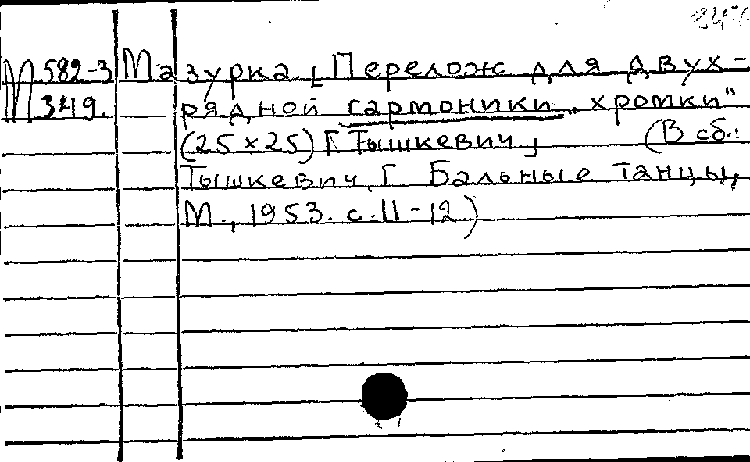 М 582-3 Мазурка [Перелож для двух-
М 349. рядной гармоники „хромки"
(25 x 25) Г. Тышкевич] (В сб.:
Тышкевич, Г. Бальные танцы,
М., 1953. с. 11-12)